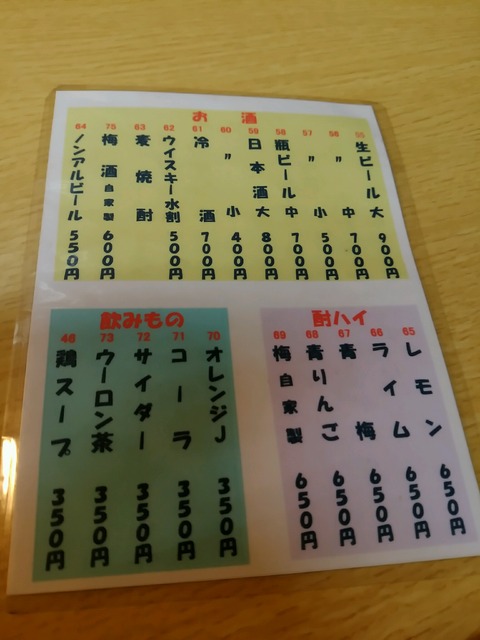 お酒
55 生ビール大 900円
56 〃 中 700円
57 〃 小 500円
58 瓶ビール中 700円
59 日本酒大 800円
60 〃 小 400円
61 冷酒 700円
62 ウイスキー水割 500円
63 麦焼酎
75 梅酒自家製 600円
64 ノンアルビール 550円
酎ハイ
65 レモン 650円
66 ライム 650円
67 青梅 650円
68 青りんご 650円
69 梅自家製 650円
飲みもの
70 オレンジJ 350円
71 コーラ 350円
72 サイダー 350円
73 ウーロン茶 350円
46 鶏スープ 350円